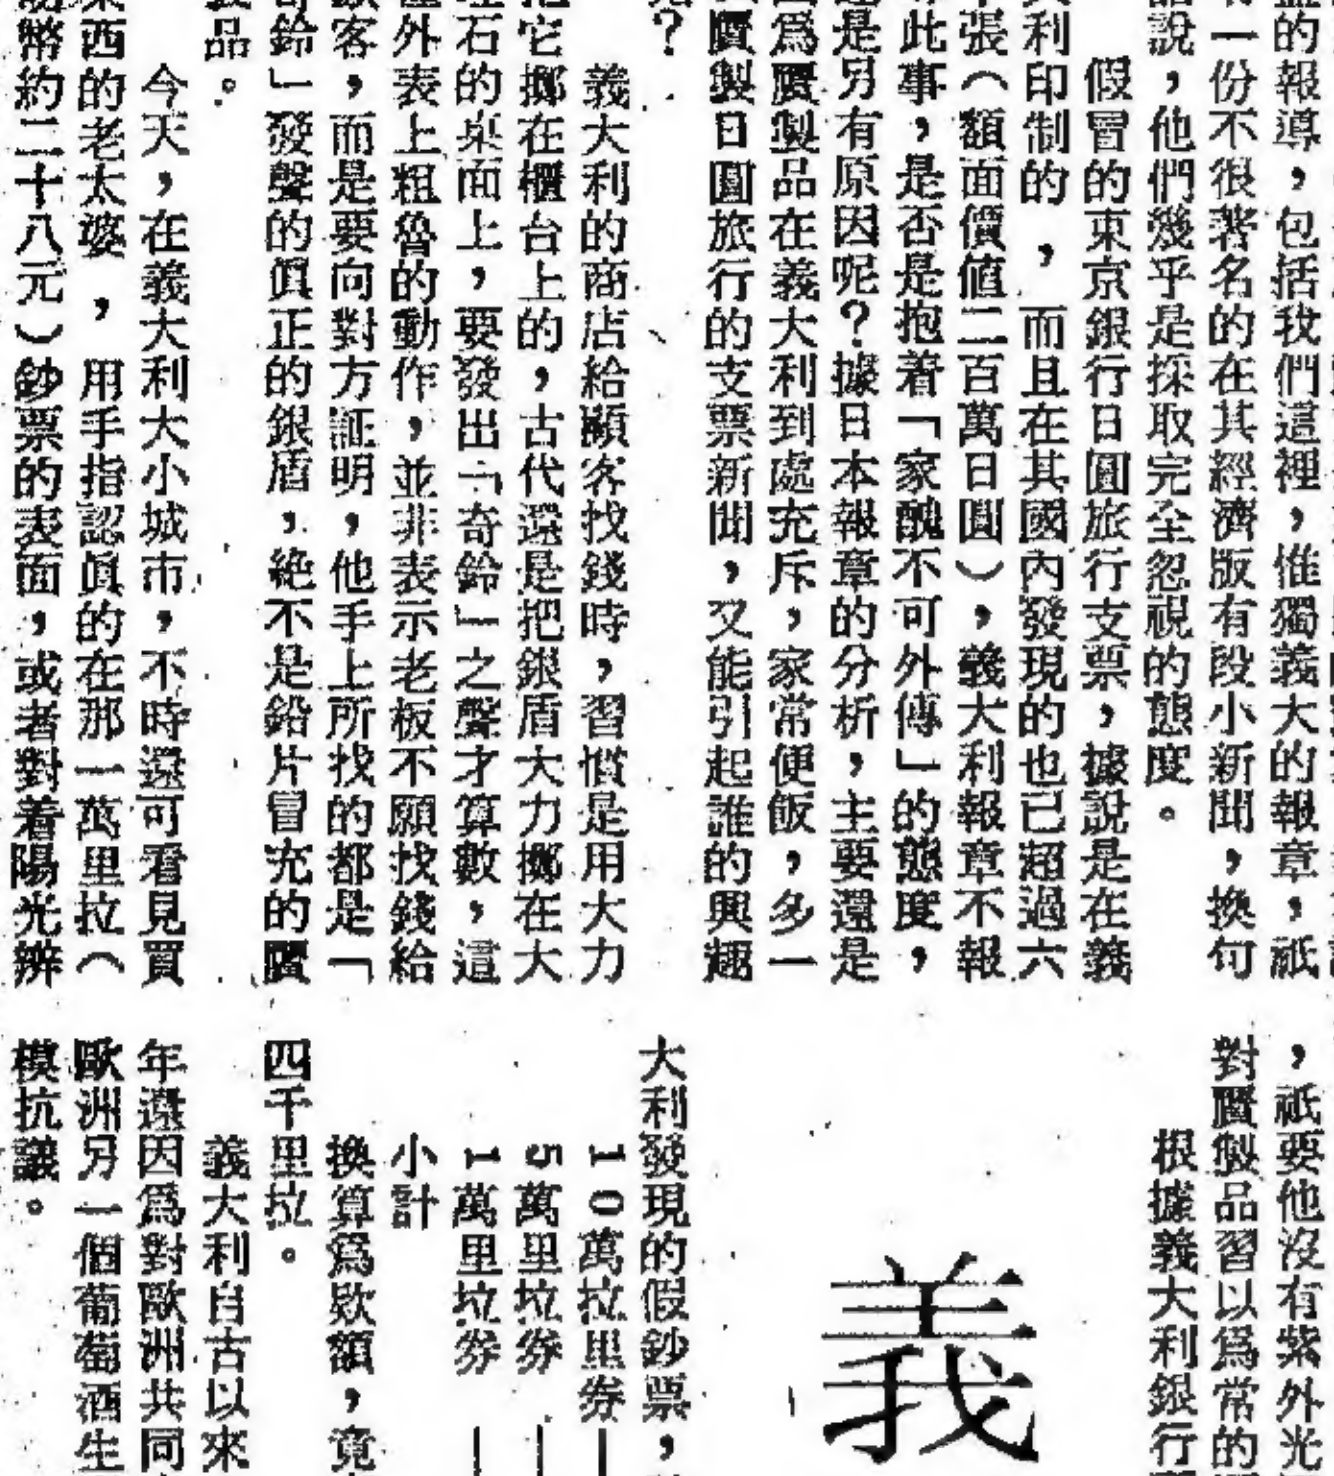 盡的報導，包括我們這裡，惟獨義大的報章，祇
一份不很著名的在其經濟版有段小新聞，換句
話說，他們幾乎是採取完全忽視的態度。
假冒的東京銀行日圓旅行支票，據說是在義
大利印制的，而且在其國內發現的也已超過六
張（額面價值二百萬日圓），義大利報章不報
此事，是否是抱着「家醜不可外傳」的態度，
還是另有原因呢？據日本報章的分析，主要還是
因爲贋製品在義大利到處充斥，家常便飯，多一
贋製日圓旅行的支票新聞，又能引起誰的興趣
？
義大利的商店給顧客找錢時，習慣是用大力
把它擲在櫃台上的，古代還是把銀盾大力擲在大
理石的桌面上，要發出「奇鈴」之聲才算數，這
種外表上粗魯的動作，並非表示老板不願找錢給
顧客，而是要向對方証明，他手上所找的都是「
奇鈴」發聲的眞正的銀盾，絶不是鉛片冒充的贋
製品。
今天，在義大利大小城市，不時還可看見買
東西的老太婆，用手指認眞的在那一萬里拉（
幣約二十八元）鈔票的表面，或者對着陽光辨
，祇要他沒有紫外光
對贋製品習以爲常的
根據義大利銀行
義
大利發現的假鈔票，
10萬拉里券—
5萬里拉券—
1萬里拉券—
小計
換算爲欵額，竟
四千里拉。
義大利自古以來
年還因爲對歐洲共同
歐洲另一個葡萄酒生
模抗議。